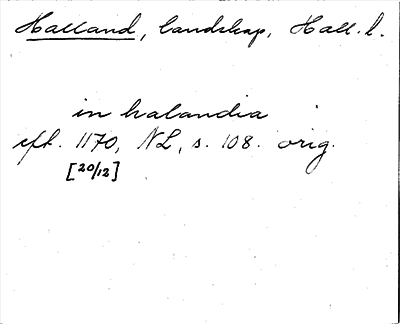 Halland, landskap, Hall. l.
in halandia
eft. 1170, NL, s. 108. orig.
[20/12]